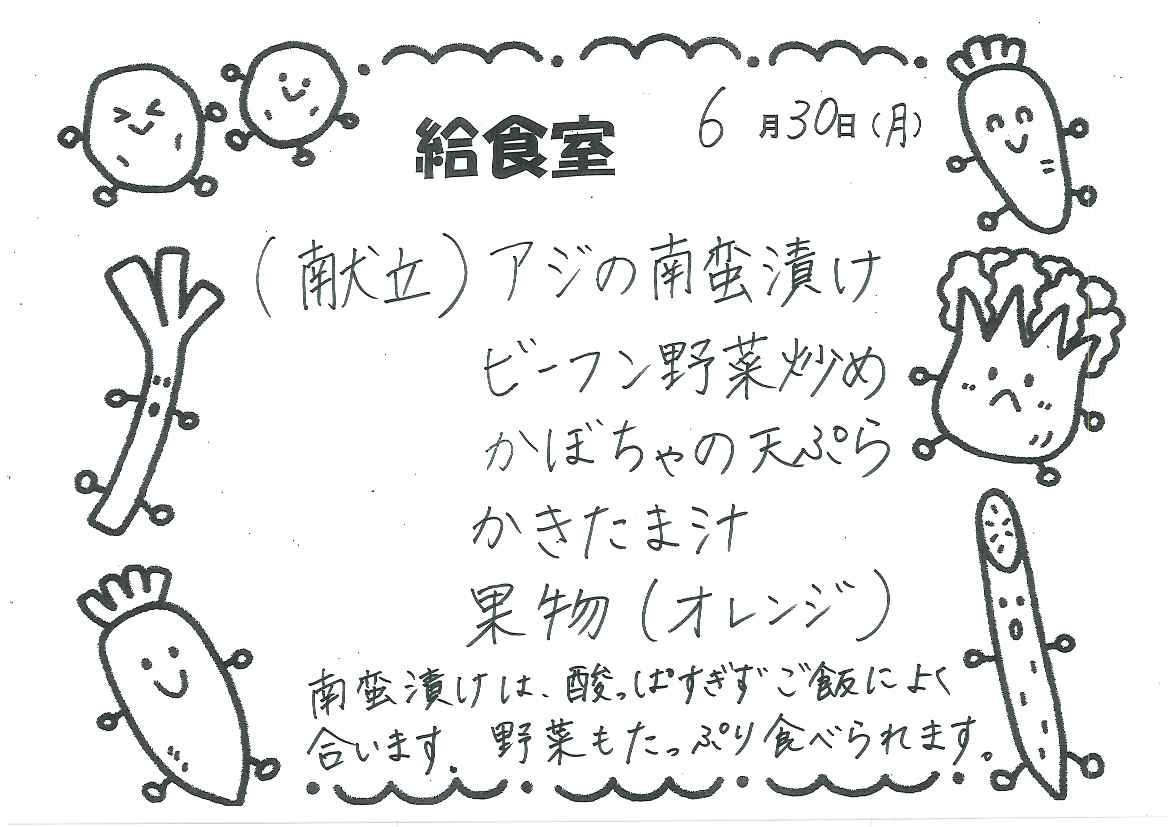 給食室 6月30日(月)
(献立)アジの南蛮漬け
ビーフン野菜炒め
かぼちゃの天ぷら
かきたま汁
果物(オレンジ)
南蛮漬けは、酸っぱすぎずご飯によく
合います。野菜もたっぷり食べられます。